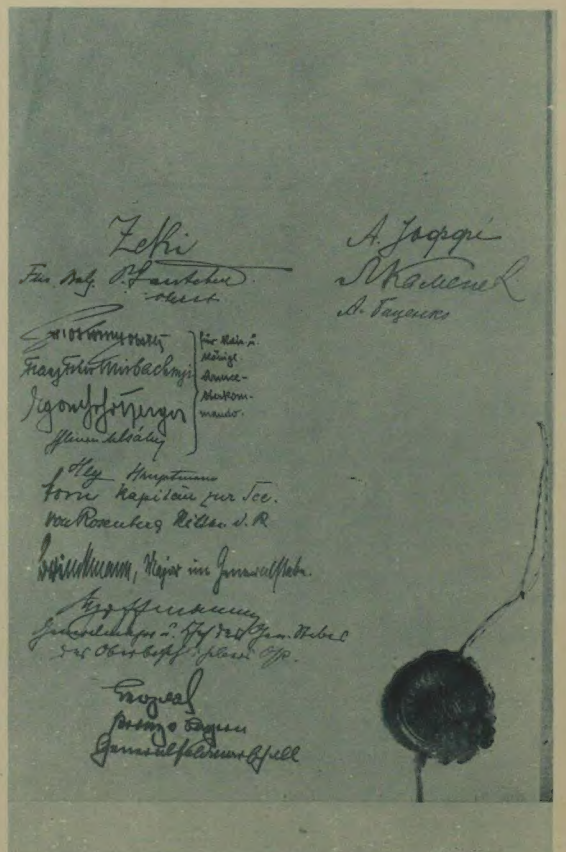 Zeki
Für Bulg. P. Gantchew
Oberst
für Kais. u.
Königl.
Armee-
Oberkom-
mando.
Hey Hauptmann
Horn Kapitän zur See.
von Rosenberg
Brinckmann, Major im Generalstabe.
Hoffmann
Generalmajor u. Chef des Gen. Stabes
des Oberbefehlshabers Ost.
Leopold
Prinz v. Bayern
Generalfeldmarschall
А. Іоффе
Л Каменев
А. Биценко